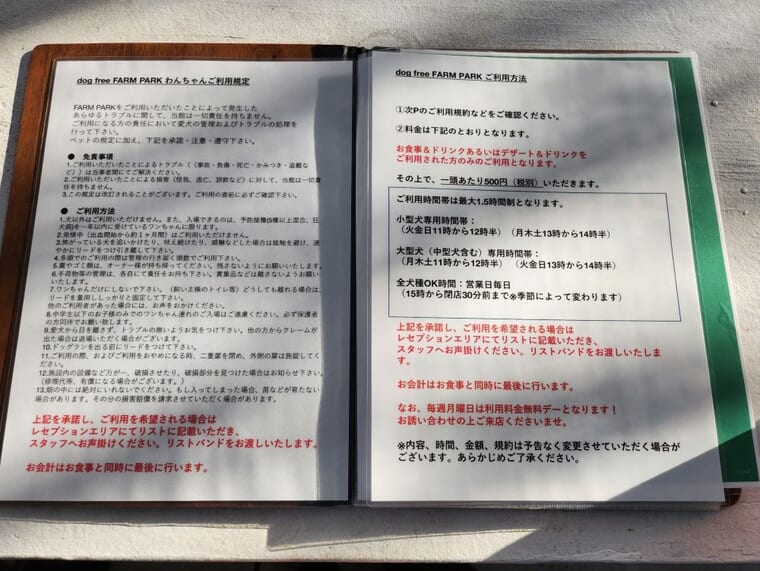 dog free FARM PARK わんちゃんご利用規定
FARM PARKをご利用いただいたことによって発生した
あらゆるトラブルに関して、当館は一切責任を持ちません。
ご利用になる方の責任において愛犬の管理およびトラブルの処理を
行って下さい。
ペットの規定に加え、下記を承諾・注意・遵守下さい。
● 免責事項
1.ご利用いただいたことによるトラブル(（事故・負傷・死亡・かみつき・盗難な
ど）)は当事者間にてご解決ください。
2.ご利用いただいたことによる損害（怪我、逃亡、誤飲など）に対して、当館は一切責
任を持ちません。
3.この規定は改訂されることがございます。ご利用の直前に必ずご確認下さい。
● ご利用方法
1.犬以外はご利用いただけません。また、入場できるのは、予防接種(5種以上混合、狂
犬病)を一年以内に受けているワンちゃんに限ります。
2.発情中（出血開始から約1ヶ月間）はご利用いただけません。
3.怖がっている犬を追いかけたり、吠え続けたり、威嚇などした場合は接触を避け、速
やかにリードをつけ引き離して下さい。
4.多頭でのご利用の際は管理の行き届く頭数でご利用下さい。
5.糞やゴミ類は、オーナー様が持ち帰ってください。残さないようにお願いいたします。
6.手荷物等の管理は、各自にて責任をお持ち下さい。貴重品などは離さないようお願い
いたします。
7.ワンちゃんだけにしないで下さい。（飼い主様のトイレ等）どうしても離れる場合は、
リードを着用ししっかりと固定して下さい。
他のご利用者があった場合には、お声をおかけください。
8.中学生以下のお子様のみでのワンちゃん連れのご入場はご遠慮ください。必ず保護者
の方同伴でお願い致します。
9.愛犬から目を離さず、トラブルの無いようお気をつけ下さい。他の方からクレームが
出た場合は退場いただく場合がございます。
10.ドッグランを出る前にリードをつけて下さい。
11.ご利用の際、およびご利用をおやめになる時、二重扉を閉め、外側の扉は施錠してく
ださい。
12.施設内の設備など万が一、破損させたり、破損部分を見つけた場合はお知らせ下さい。
（修理代等、有償になる場合がございます。）
13.畑の中には絶対にいれないでください。もし入ってしまった場合、苗などが育たない
場合があります。その分の損害賠償を請求させていただく場合があります。
上記を承諾し、ご利用を希望される場合は
レセプションエリアにてリストに記載いただき、
スタッフへお声掛けください。リストバンドをお渡しいたします。
お会計はお食事と同時に最後に行います。
dog free FARM PARK ご利用方法
①次Pのご利用規約などをご確認ください。
②料金は下記のとおりとなります。
お食事&ドリンクあるいはデザート&ドリンクを
ご利用された方のみのご利用となります。
その上で、一頭あたり500円（税別）いただきます。
ご利用時間帯は最大1.5時間制となります。
小型犬専用時間帯：
（火金日11時から12時半）（月木土13時から14時半）
大型犬（中型犬含む）専用時間帯：
（月木土11時から12時半）（火金日13時から14時半）
全犬種OK時間：営業日毎日
（15時から閉店30分前まで※季節によって変わります）
上記を承諾し、ご利用を希望される場合は
レセプションエリアにてリストに記載いただき、
スタッフへお声掛けください。リストバンドをお渡しいたしま
す。
お会計はお食事と同時に最後に行います。
なお、毎週月曜日は利用料金無料デーとなります！
お問い合わせの上ご来店くださいませ。
※内容、時間、金額、規約は予告なく変更させていただく場合が
ございます。あらかじめご了承ください。